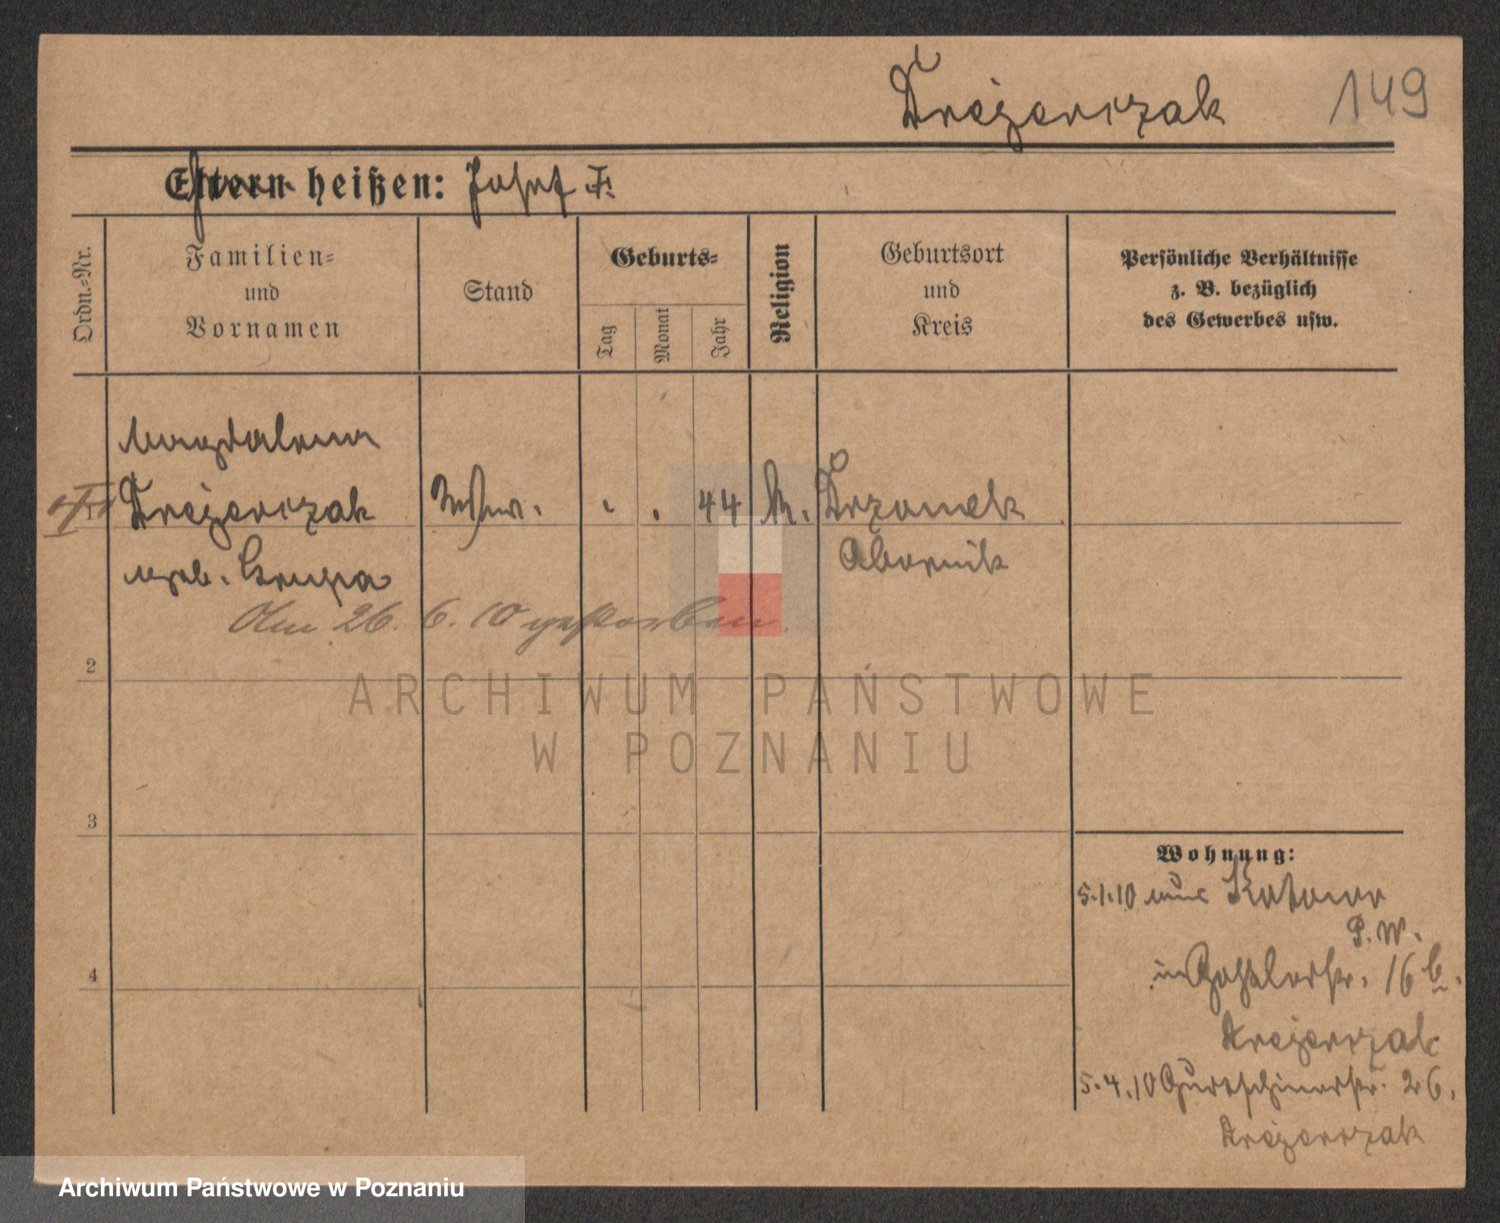 Dreżewczak 149
Eltern heißen: Josef F.
Ordn.-Nr.
Familien-
und
Vornamen
Stand
Geburts-
Tag
Monat
Jahr
Religion
Geburtsort
und
Kreis
Persönliche Verhältnisse
z. B. bezüglich
des Gewerbes usw.
Magdalena
1 Dreżewczak Wwe. 44 k.
geb. Krupa Obornik
Am 26. 6. 10 gestorben.
2
3
4
Wohnung:
5.1.10 aus
P. W.
in 16 b.
Dreżewczak
5.4.10 Gurtschinerstr. 26.
Dreżewczak
ARCHIWUM PAŃSTWOWE
W POZNANIU
Archiwum Państwowe w Poznaniu